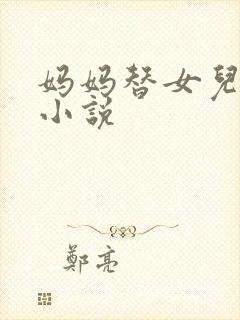 妈妈替女兒
小說
鄭亮